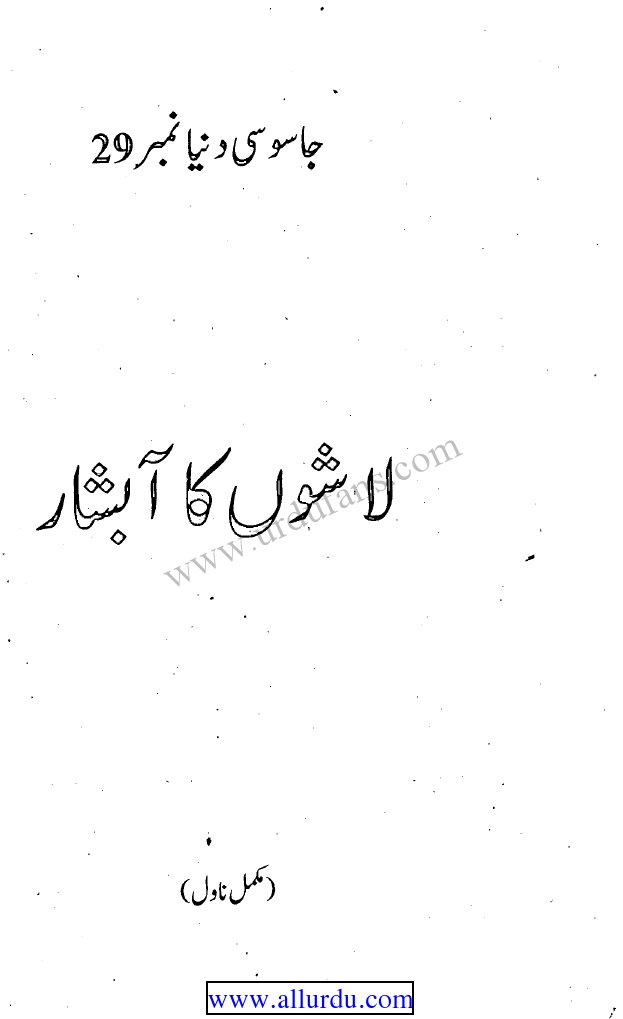 جاسوسی دنیا نمبر 29
لاشوں کا آبشار
www.urdufans.com
(مکمل ناول)
www.allurdu.com